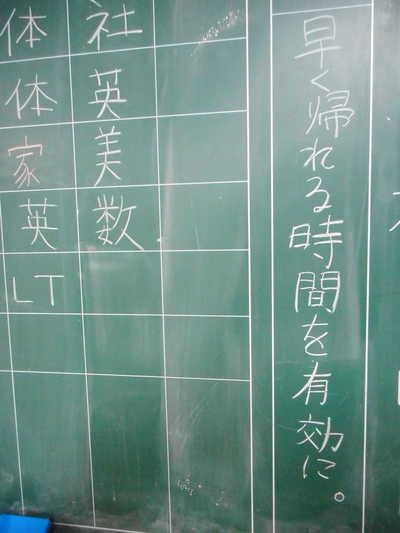 早く帰れる時間を有効に。
社
英
美
数
体
体
家
英
LT